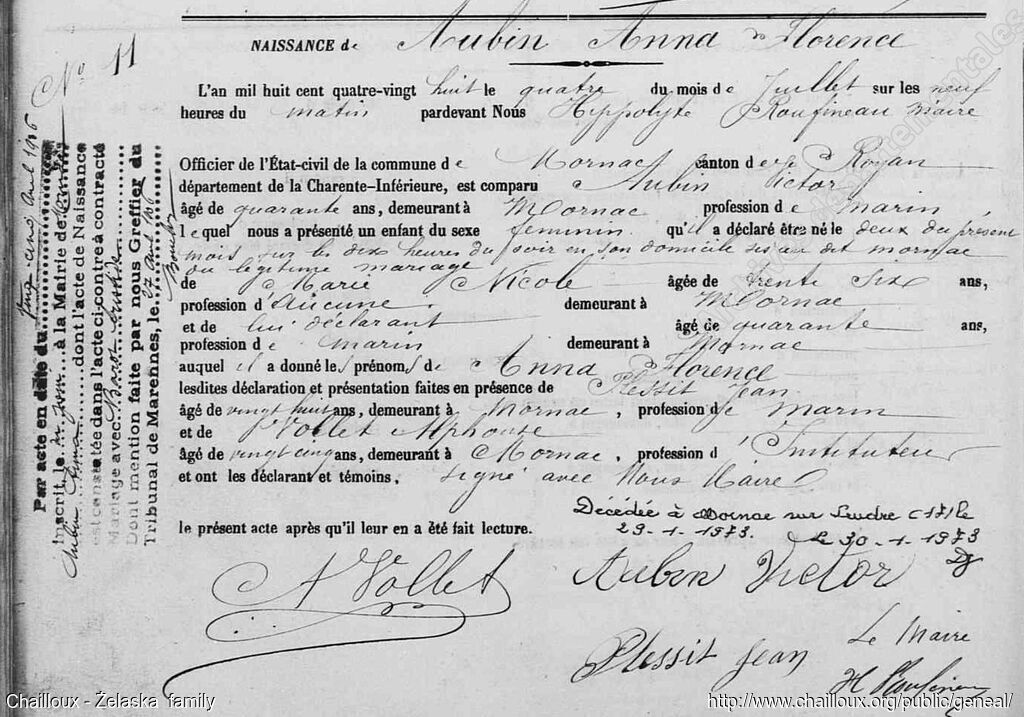 N° 11
NAISSANCE de Aubin Anna Florence
L'an mil huit cent quatre-vingt huit le quatre du mois de Juillet sur les neuf
heures du matin pardevant Nous Hippolyte Roufineau maire
Officier de l'État-civil de la commune de Mornac canton de Royan
département de la Charente-Inférieure, est comparu Aubin Victor
âgé de quarante ans, demeurant à Mornac profession de marin
lequel nous a présenté un enfant du sexe féminin qu'il a déclaré être né le deux du présent
mois sur les dix heures du soir en son domicile sis au dit mornac
du légitime mariage
de Marie Nicole âgée de trente six ans,
profession d'Aucune demeurant à Mornac
et de lui déclarant âgé de quarante ans,
profession de marin demeurant à Mornac
auquel il a donné les prénoms de Anna Florence
lesdites déclaration et présentation faites en présence de Plessit Jean
âgé de vingt huit ans, demeurant à Mornac, profession de marin
et de Vollet Alphonse
âgé de vingt cinq ans, demeurant à Mornac, profession d'Instituteur
et ont les déclarant et témoins, signé avec Nous Maire
le présent acte après qu'il leur en a été fait lecture.
Décédée à Mornac sur Seudre
29-1-1973. le 30-1-1973
A Vollet
Aubin Victor
Plessit Jean
Le Maire
H Roufineau
Par acte en date du vingt-cinq avril 1906
inscrit le dit jour à la Mairie de
Aubin Anna dont l'acte de Naissance
est constatée dans l'acte ci-contre à contracté
Mariage avec
Dont mention faite par nous Greffier du
Tribunal de Marennes, le 27 avril 1906
Chailloux - Żelaska family
http://www.chailloux.org/public/geneal/